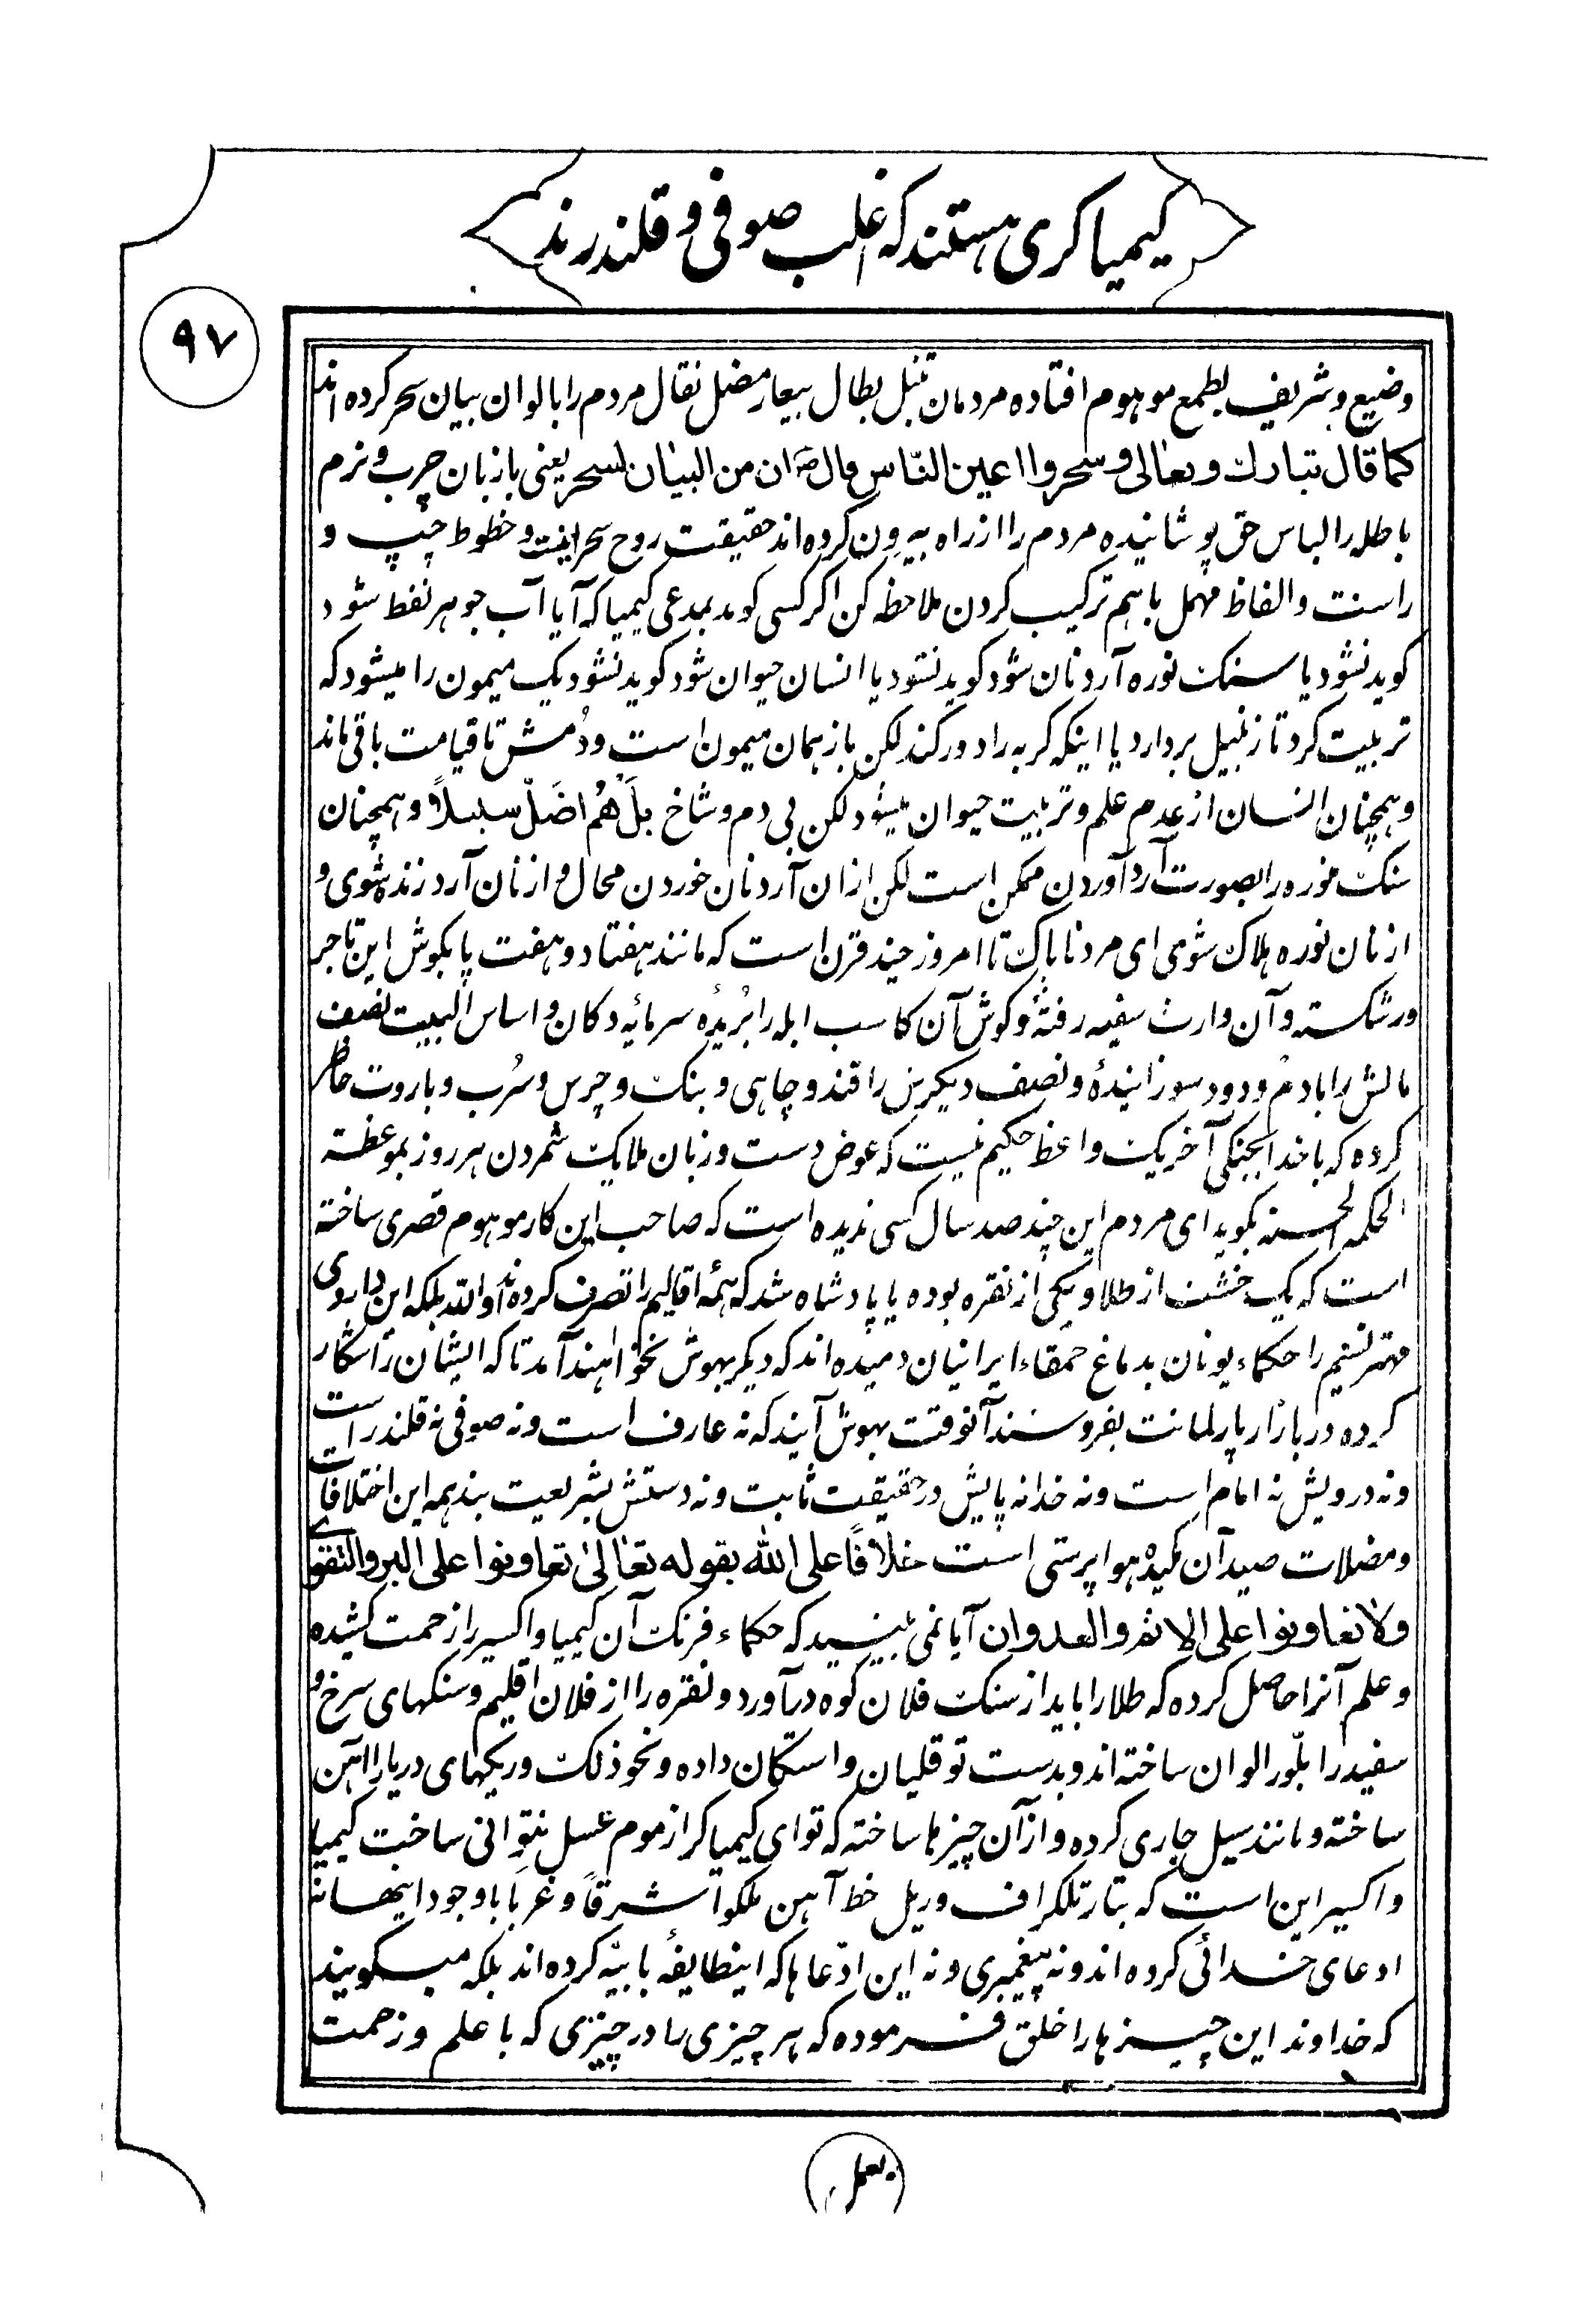 کیمیا کری هستند که اغلب صوفی و قلندرند
۹۷
وضیع و شریف بطمع موهوم افتاده مردمان تنبل بطال بیعار مضل نقال مردم را بالوان بیان سحر کرده اند
کما قال تبارک و تعالی و سحروا اعین النّاس قال ص ان من البیان لسحر یعنی با زبان چرب و نرم
باطل را لباس حق پوشانیده مردم را از راه بیرون کرده اند حقیقت روح سحر اینست و خطوط چپ و
راست و الفاظ مهمل باهم ترکیب کردن ملاحظه کن اکر کسی کوید بمدعی کیمیا که آیا آب جو هر نفط شود
کوید نشود یا سنک نوره آرد نان شود کوید نشود یا انسان حیوان شود کوید نشود یک میمون را میشود که
تربیت کرد تا زنبیل بردارد یا اینکه کربه را دور کند لکن باز همان میمون است و دُمش تا قیامت باقی ماند
و همچنان انسان از عدم علم و تربیت حیوان میشود لکن بی دم و شاخ بل هُم اضَلّ سبیلاً و همچنان
سنک نوره را بصورت آرد آوردن ممکن است لکن از ان آرد نان خوردن محال و از نان آرد زنده شوی و
از نان نوره هلاک شوی ای مرد ناپاک تا امروز چند قرن است که مانند هفتاد و هفت پا بکوش این تاجر
ورشکسته و آن وارث سفیه رفتهٔ و کوش آن کاسب ابله را بُریدهٔ سرمایه دکان و اساس البیت نصف
مالش را با دم و دود سوزانیدهٔ و نصف دیکرش را قند و چاهی و بنک و چرس و سُرب و باروت حاضر
کرده که با خدا بجنکی آخر یک واعظ حکیم نیست که عوض دست و زبان ملایک شمردن هر روز بموعظة
الحکمه الحسنه بکوید ای مردم این چند صد سال کسی ندیده است که صاحب این کار موهوم قصری ساخته
است که یک خشت از طلا و یکی از نقره بوده یا پادشاه شد که همه اقالیم را تصرف کرده اند والله بلکه این داروی
مهتر نسیم را حکماء یونان بدماغ حمقاء ایرانیان دمیده اند که دیکر بهوش نخواهند آمد تا که ایشان را شکار
کرده در بازار پارلمانت بفروشند آنوقت بهوش آیند که نه عارف است و نه صوفی نه قلندر است
و نه درویش نه امام است و نه خدا نه پایش در حقیقت ثابت و نه دستش بشریعت بند همه این اختلافات
و مضلات صید آن کیده هوا پرستی است خلافًا علی الله بقوله تعالی تعاونوا علی البر والتقوی
ولا تعاونوا علی الاثم والعدوان آیا نمی بینید که حکماء فرنک آن کیمیا و اکسیر را زحمت کشیده
و علم آنرا حاصل کرده که طلا را باید از سنک فلان کوه درآورد و نقره را از فلان اقلیم و سنکهای سرخ و
سفید را بلّور الوان ساخته اند و بدست تو قلیان و استکان داده و نحو ذلک و ریکهای دریا را آهن
ساخته و مانند سیل جاری کرده و از آن چیزها ساخته که تو ای کیمیاکر از موم عسل نتوانی ساخت کیمیا
و اکسیر این است که بتار تلکراف و ریل خط آهن ملکوا شرقًا و غربًا با وجود اینها نه
ادعای خدائی کرده اند و نه پیغمبری و نه این ادّعاها که اینطایفهٔ بابیّه کرده اند بلکه میکویند
که خداوند این چیزها را خلق فرموده که هر چیزی را در چیزی که با علم و زحمت